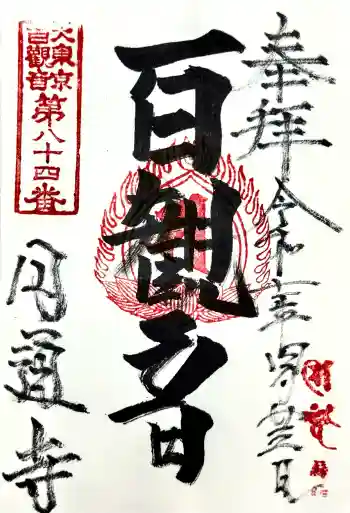 奉拝
令和七年四月廿三日
百観音
大東京
百觀音
第八十四番
円通寺